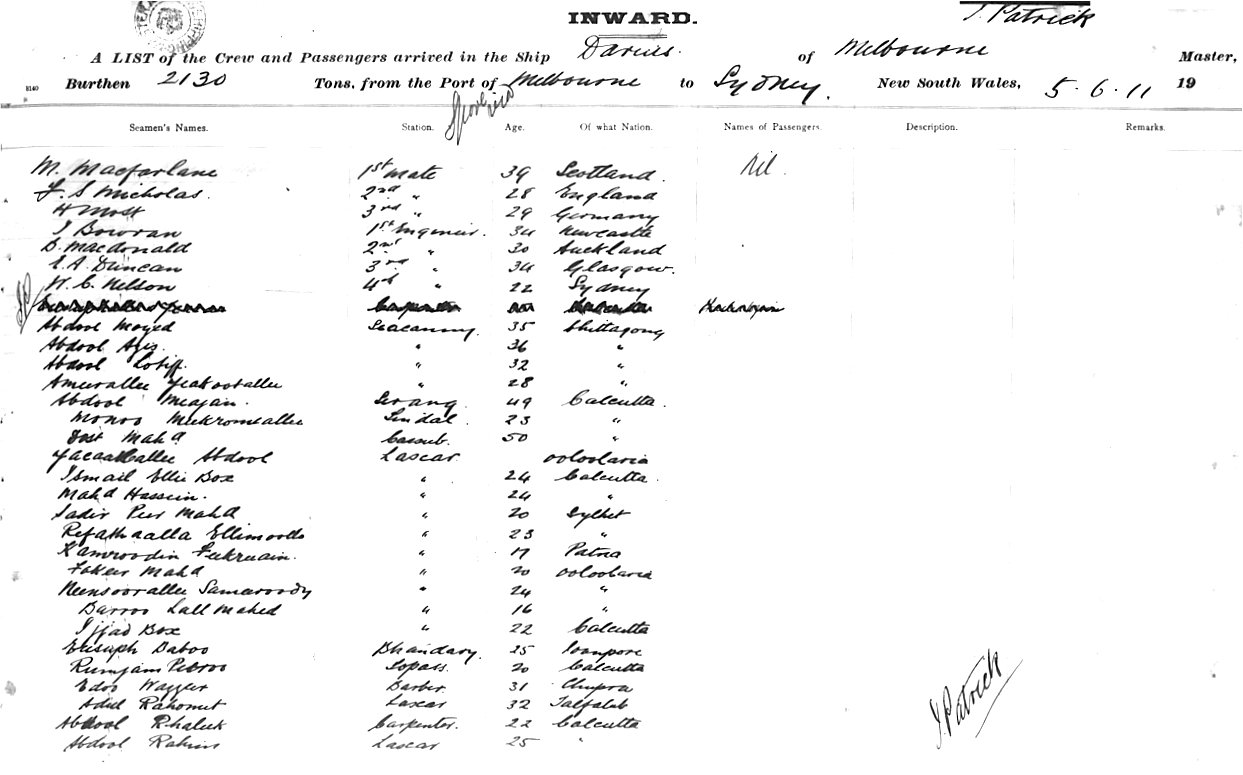 INWARD.
J. Patrick
A LIST of the Crew and Passengers arrived in the Ship Darius. of Melbourne Master,
B140 Burthen 2130 Tons, from the Port of Melbourne to Sydney. New South Wales, 5.6.11 19
Seamen's Names. Station. Age. Of what Nation. Names of Passengers. Description. Remarks.
M. Macfarlane 1st Mate 39 Scotland. Nil
F. S Nicholas. 2nd " 28 England
H Most 3rd " 29 Germany
J Bowran 1st Engineer. 34 Newcastle
D. Macdonald 2nd " 30 Auckland
E. A. Duncan 3rd " 34 Glasgow.
W. C. Nelson 4th " 22 Sydney
JP Carpenter Calcutta
Abdool Moyed Seacunny. 35 Chittagong
Abdool Azis. " 36 "
Abdool Lotiff. " 32 "
Ameerallee Yeakootallee " 28 "
Abdool Meajan. Serang 49 Calcutta.
Monoo Mukromeallee Tindal. 23 "
Dost Mahd Cassub. 50 "
Abdool Lascar Ooloobaria
Ismail Ellie Box " 24 Calcutta.
Mahd Hassein. " 24 "
Sadir Peer Mahd " 20 Sylhet
Refathaalla " 23 "
Kamroodin Fukruain. " 17 Patna
Fokeer Mahd " 20 Ooloobaria
Neensoorallee Sameroody " 24 "
Barroo Lall Mahed " 16 "
Ijjad Box " 22 Calcutta
Elisuph Baboo Bhandary. 25
Rumjam Pebroo Topass. 20 Calcutta
Edoo Wazeer Barber 31 Chupra
Adul Rahomut Lascar 32
Abdool Khaleek Carpenter. 22 Calcutta
Abdool Rahim Lascar 25 "
J. Patrick